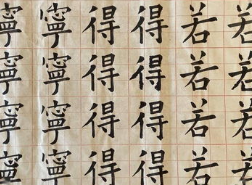 若若若若
若若若若
得得得得
得得得得
寧寧寧寧
寧寧寧寧